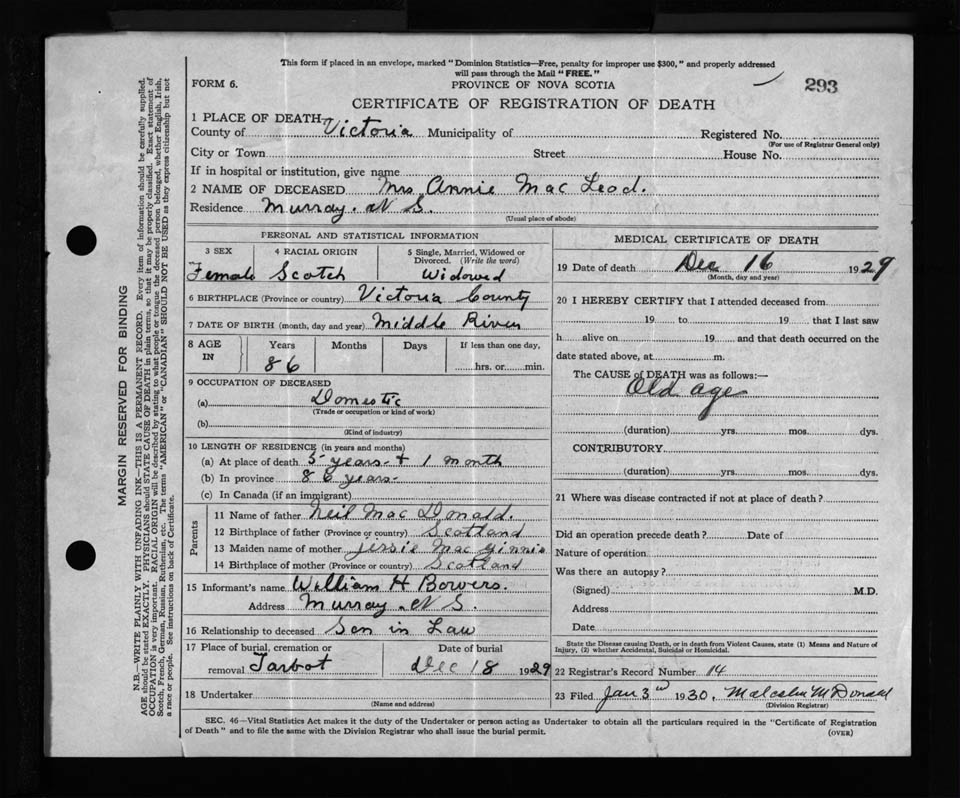 This form if placed in an envelope, marked "Dominion Statistics—Free, penalty for improper use $300," and properly addressed
will pass through the Mail "FREE."
FORM 6.
PROVINCE OF NOVA SCOTIA
293
CERTIFICATE OF REGISTRATION OF DEATH
1 PLACE OF DEATH
County of Victoria Municipality of Registered No.
(For use of Registrar General only)
City or Town Street House No.
If in hospital or institution, give name
2 NAME OF DECEASED Mrs Annie Mac Leod.
Residence Murray. N S.
(Usual place of abode)
PERSONAL AND STATISTICAL INFORMATION
3 SEX 4 RACIAL ORIGIN 5 Single, Married, Widowed or
Divorced. (Write the word)
Female Scotch Widowed
6 BIRTHPLACE (Province or country) Victoria County
7 DATE OF BIRTH (month, day and year) Middle River
8 AGE IN Years Months Days If less than one day,
86 hrs. or min.
9 OCCUPATION OF DECEASED
(a) Domestic
(Trade or occupation or kind of work)
(b)
(Kind of industry)
10 LENGTH OF RESIDENCE (in years and months)
(a) At place of death 5 years + 1 month
(b) In province 86 years
(c) In Canada (if an immigrant)
Parents
11 Name of father Neil Mac Donald.
12 Birthplace of father (Province or country) Scotland
13 Maiden name of mother Jessie Mac Ginnis
14 Birthplace of mother (Province or country) Scotland
15 Informant's name William H Bowers.
Address Murray. N S.
16 Relationship to deceased Son in Law
17 Place of burial, cremation or Date of burial
removal Tarbot Dec 18 1929
18 Undertaker
(Name and address)
MEDICAL CERTIFICATE OF DEATH
19 Date of death Dec 16 1929
(Month, day and year)
20 I HEREBY CERTIFY that I attended deceased from
19 to 19 that I last saw
h alive on 19 and that death occurred on the
date stated above, at m.
The CAUSE of DEATH was as follows:—
Old age
(duration) yrs. mos. dys.
CONTRIBUTORY
(duration) yrs. mos. dys.
21 Where was disease contracted if not at place of death?
Did an operation precede death? Date of
Nature of operation
Was there an autopsy?
(Signed) M.D.
Address
Date
State the Disease causing Death, or in death from Violent Causes, state (1) Means and Nature of
Injury, (2) whether Accidental, Suicidal or Homicidal.
22 Registrar's Record Number 14
23 Filed Jan 3rd 1930. Malcolm McDonald
(Division Registrar)
SEC. 46—Vital Statistics Act makes it the duty of the Undertaker or person acting as Undertaker to obtain all the particulars required in the "Certificate of Registration
of Death" and to file the same with the Division Registrar who shall issue the burial permit.
(OVER)
MARGIN RESERVED FOR BINDING
N.B.—WRITE PLAINLY WITH UNFADING INK—THIS IS A PERMANENT RECORD. Every item of information should be carefully supplied.
AGE should be stated EXACTLY. PHYSICIANS should STATE CAUSE OF DEATH in plain terms, so that it may be properly classified. Exact statement of
OCCUPATION is very important. RACIAL ORIGIN will be described by stating to what people or tongue the deceased person belonged, whether English, Irish,
Scotch, French, German, Russian, Ruthenian, etc. The terms "AMERICAN" or "CANADIAN" SHOULD NOT BE USED as they express citizenship but not
a race or people. See instructions on back of Certificate.